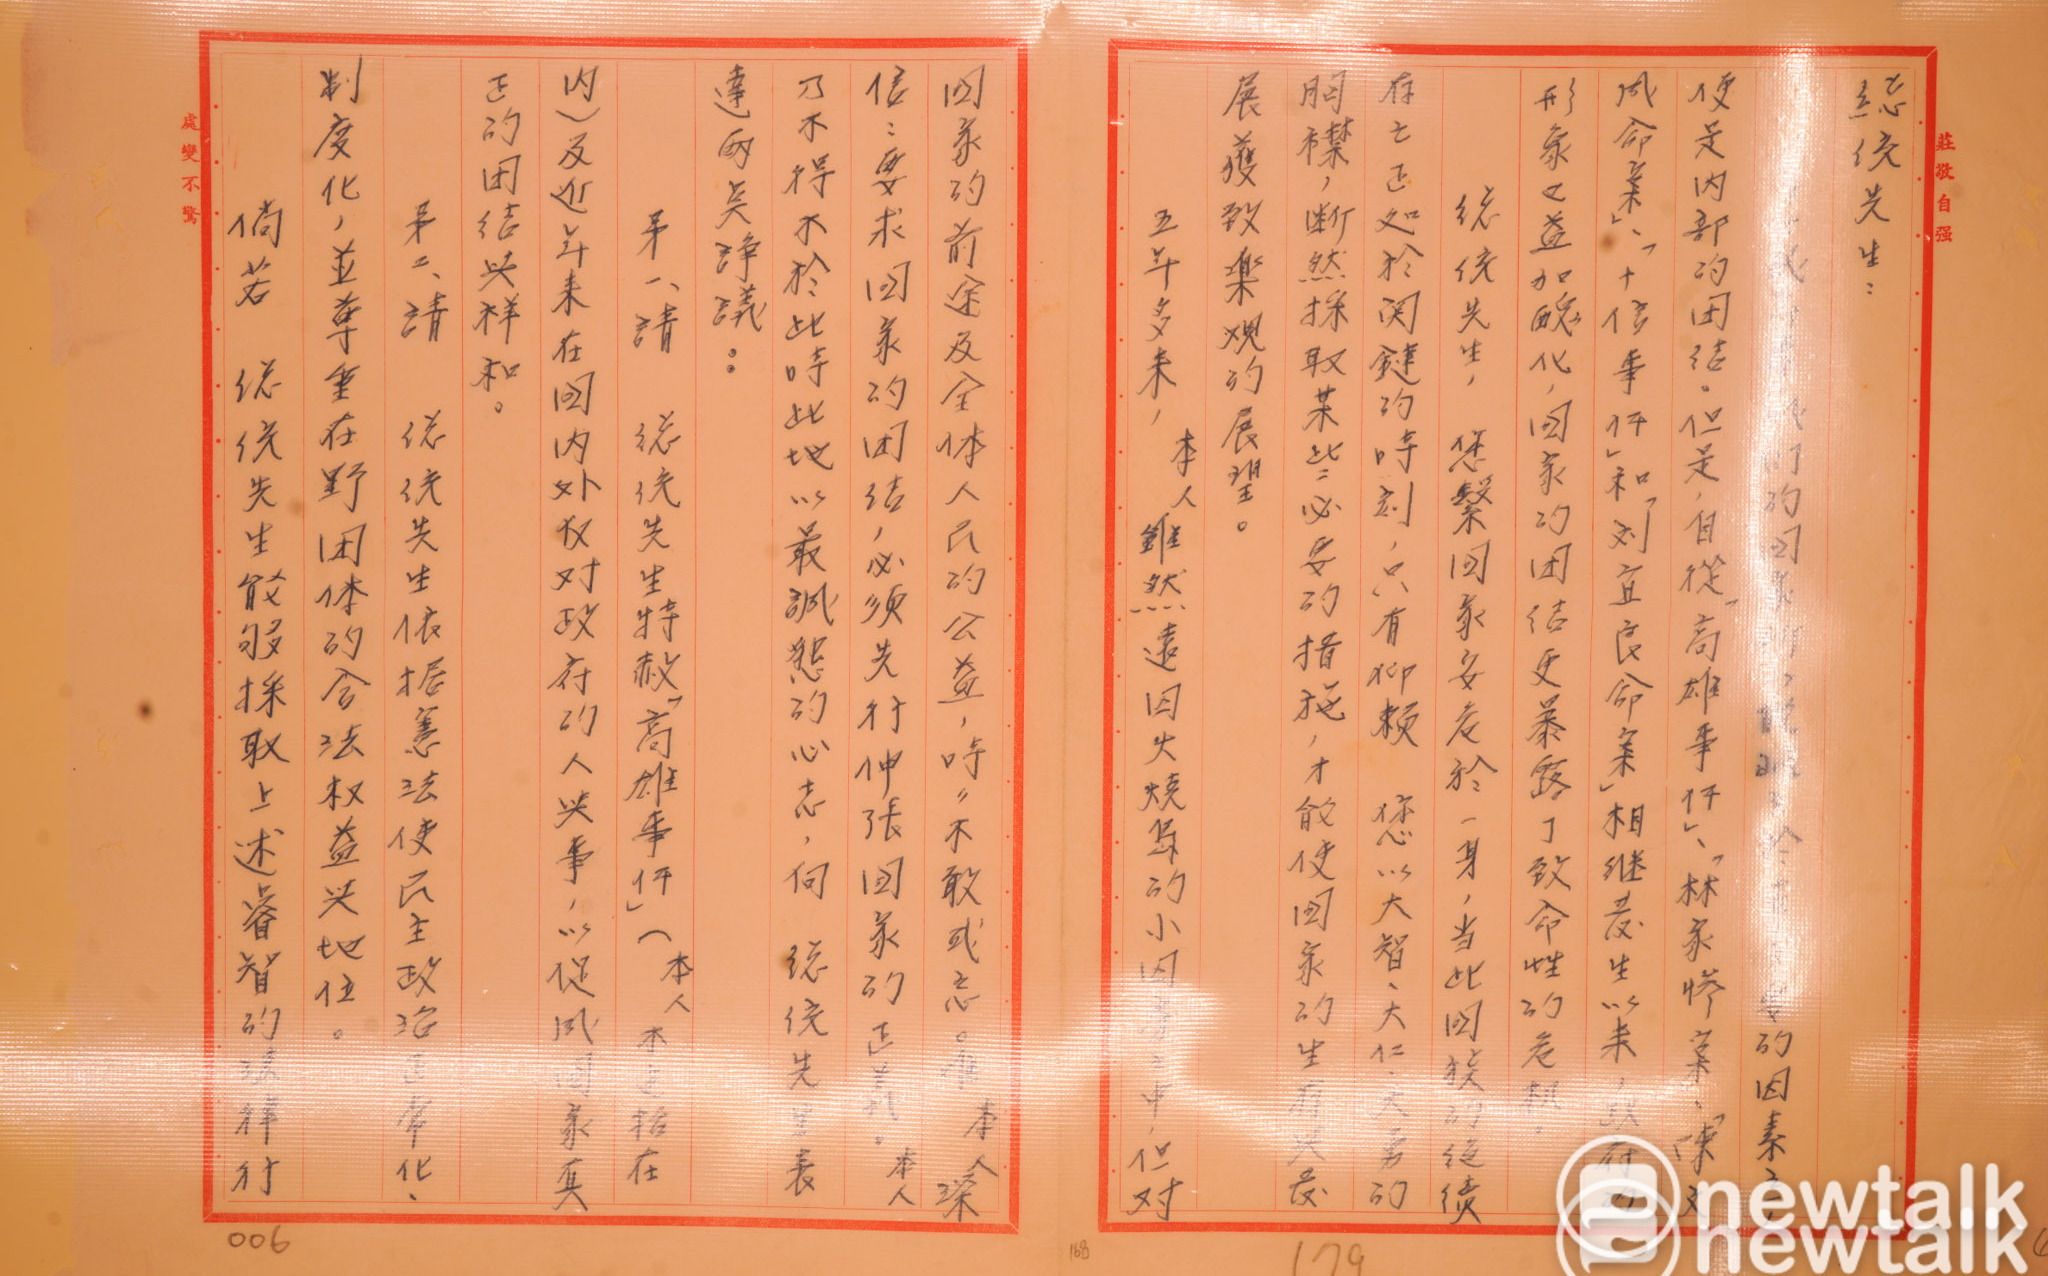 莊敬自强
總統先生：
的因素之
便是内部的团结。但是，自從「高雄事件」、「林家惨案」、「陳文
成命案」、「十信事件」和「刘宜良命案」相继发生以来，政府的
形象已益加醜化，国家的团结更暴露了致命性的危机。
總统先生，您繫国家安危於一身，当此国族的绝续
存亡正如於関鍵的時刻，只有仰赖　您以大智、大仁、大勇的
胸襟，断然採取某些必要的措施，才能使国家的生存与发
展獲致樂观的展望。
五年多来，本人雖然遠囚火燒岛的小囚房之中，但对
国家的前途及全体人民的公益，時々不敢或忘。惟本人深
信：要求国家的团结，必须先行伸張国家的正義。本人
乃不得不於此時此地以最誠懇的心志，向　總统先生表
達两点諍議：
第一、請　總统先生特赦「高雄事件」（本人不包括在
内）及近年来在国内外反对政府的人与事，以促成国家真
正的团结与祥和。
第二、請　總统先生依据憲法使民主政治正常化、
制度化，並尊重在野团体的合法权益与地位。
倘若　總统先生能够採取上述睿智的 行
處變不驚
006
168
179
newtalk
newtalk